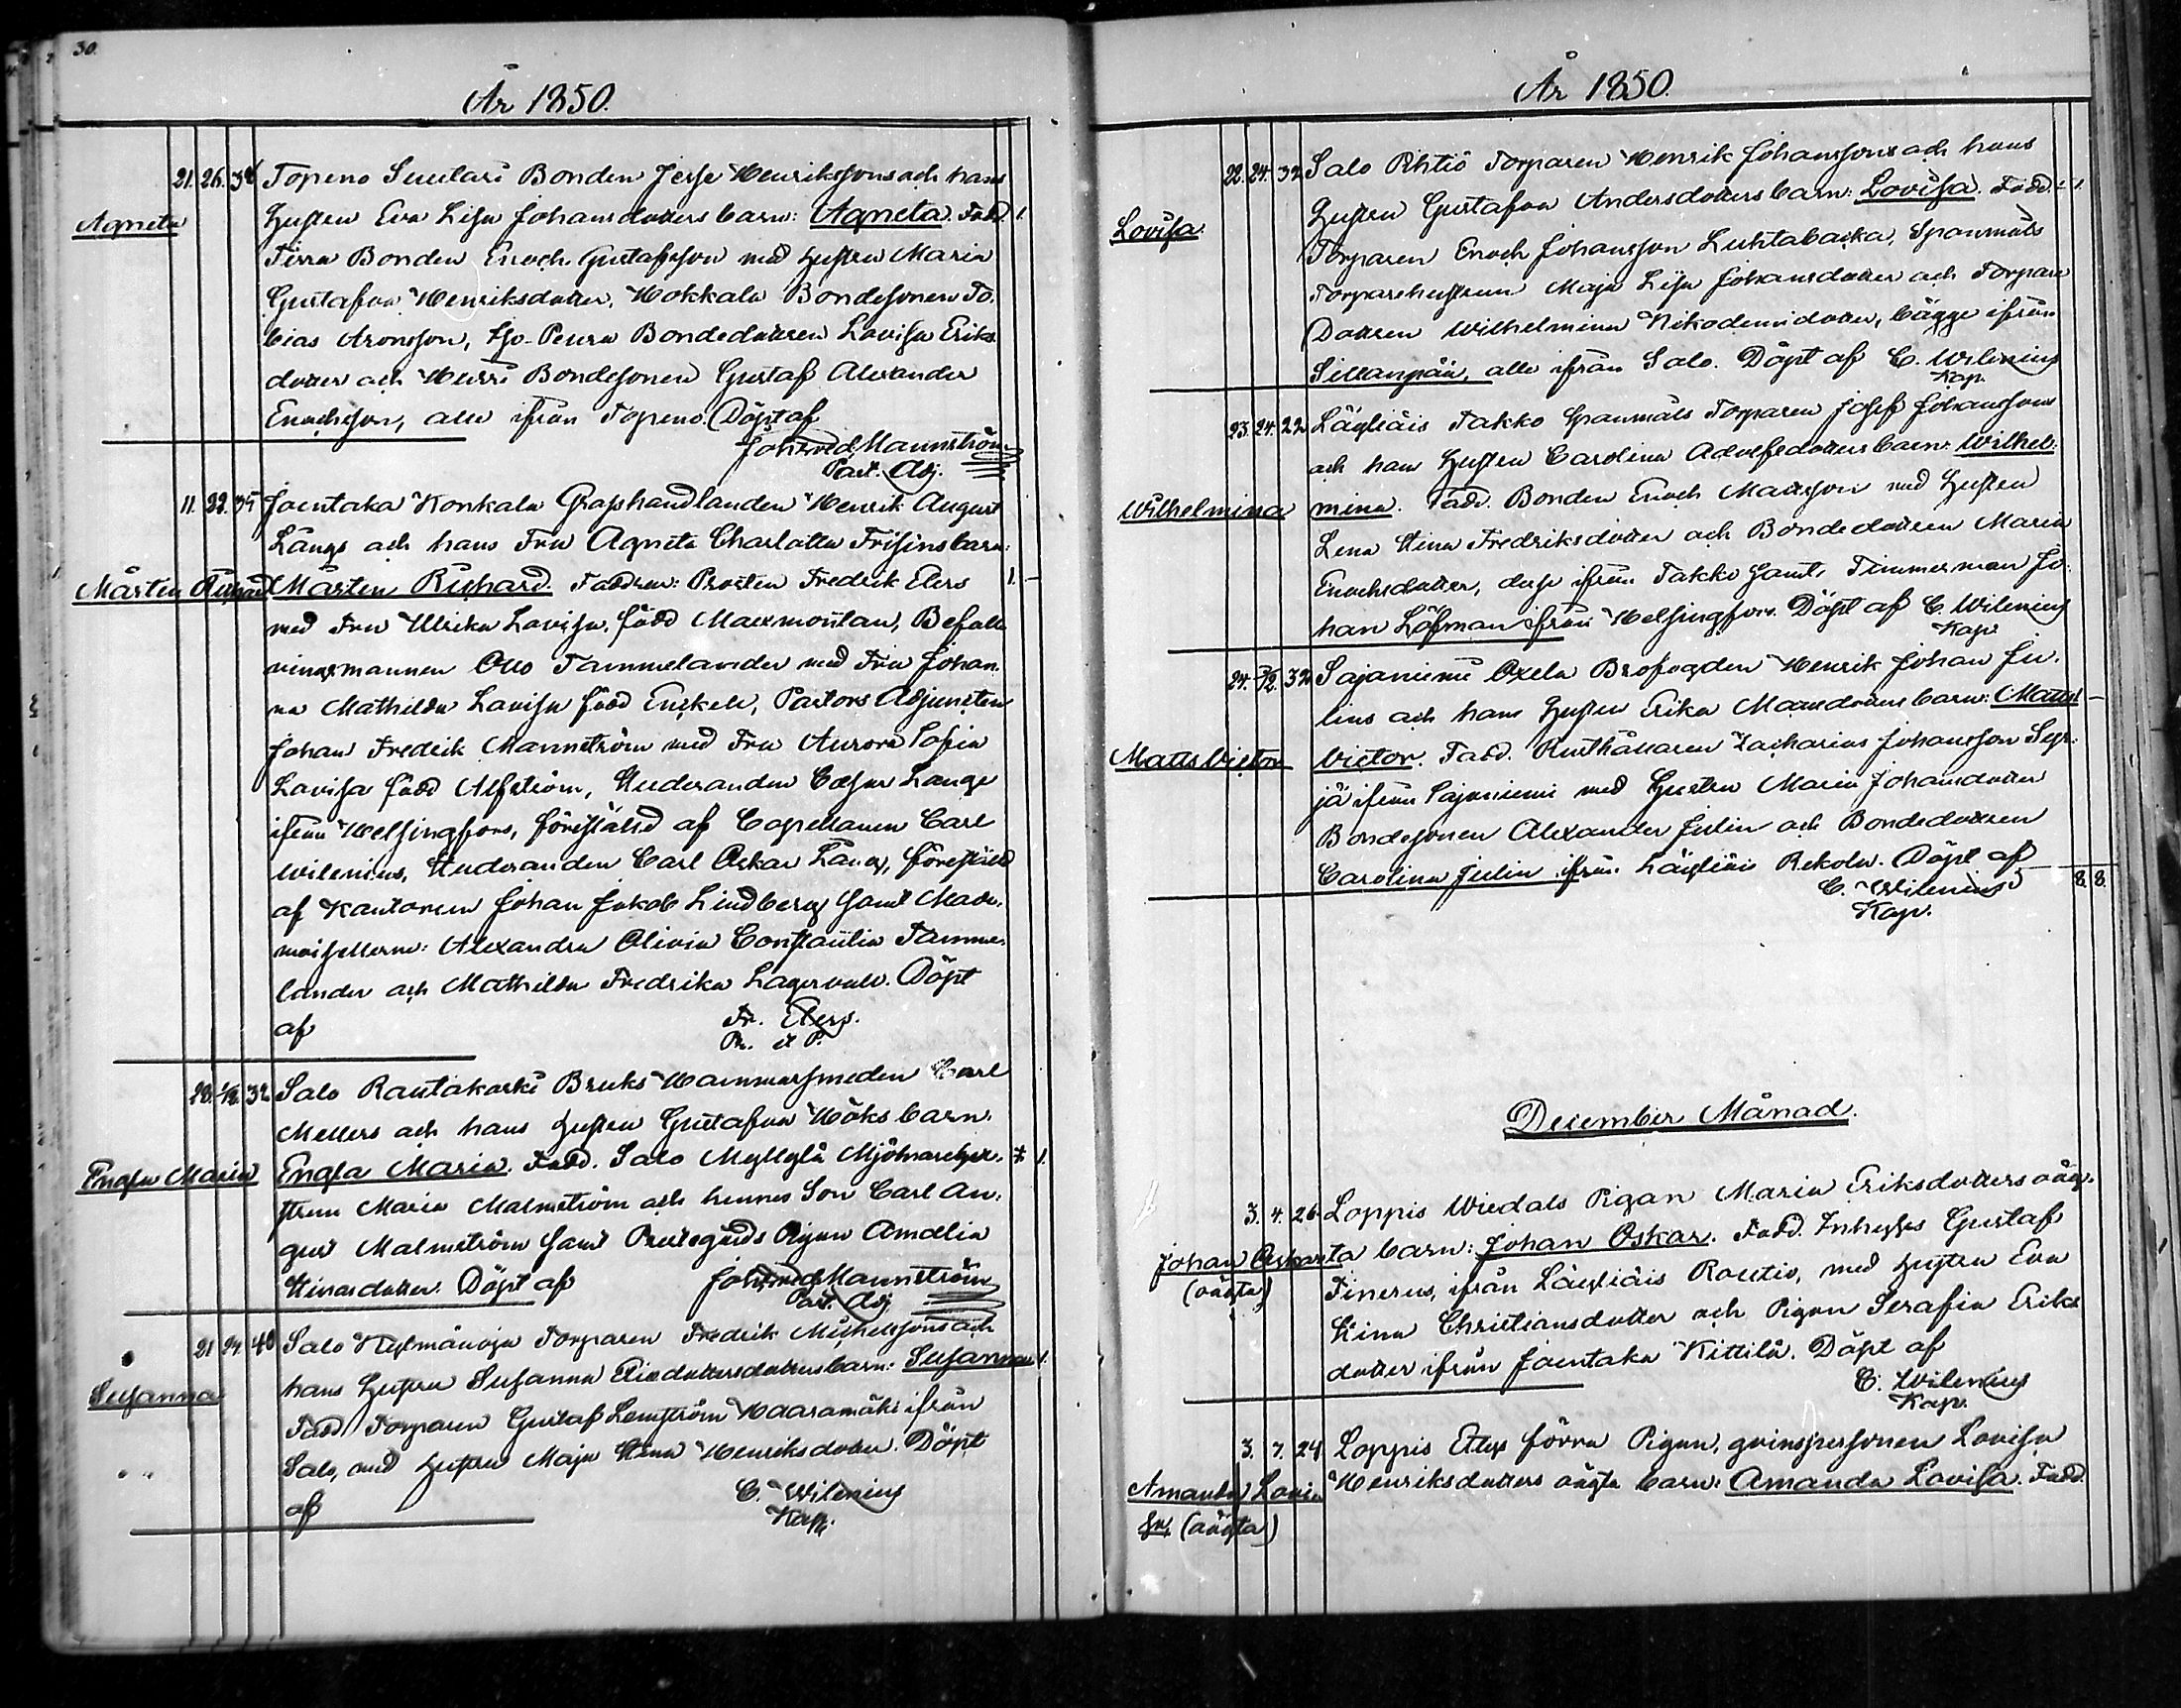 30.
År 1850.
21. 26. 34 Topeno Suulari Bonden Jesse Henrikssons och hans
Agneta
Hustru Eva Lisa Johansdotters barn: Agneta. Fadd. 1.
Tirra Bonden Enoch Gustafsson med hustru Maria
Gustafva Henriksdotter, Hokkala Bondesonen To-
bias Aronsson, Iso-Peura Bondedottren Lovisa Eriks-
dotter och Hurri Bondesonen Gustaf Alexander
Enochsson, alla ifrån Topeno. Döpt af
Joh. Fred. Mannström
Past. Adj.
11. 22. 35 Joentaka Konkala Grosshandlanden Henrik August
Långs och hans Fru Agneta Charlotta Frisins barn:
Mårten Richard Mårten Richard. Faddrar: Prosten Fredrik Elers 1. –
med Fru Ulrika Lovisa, född Maexmontan, Befall-
ningsmannen Otto Tammelander med Fru Johan-
na Mathilda Lovisa född Enckell, Pastors Adjuncten
Johan Fredrik Mannström med Fru Aurora Sofia
Lovisa född Alfström, Studeranden Edvar Lange
ifrån Helsingfors, föreställd af Capellanen Carl
Wilenius, Studeranden Carl Oskar Lång, föreställd
af Kantoren Johan Jakob Lindberg samt Made-
moisellerna: Alexandra Olivia Constantia Tamme-
lander och Mathilda Fredrika Lagervall. Döpt
af Fr. Elers.
Pr. et P.
20. 1/12. 32 Salo Rautakoski Bruks Hammarsmeden Carl
Mellers och hans hustru Gustafva Höks barn.
Engla Maria Engla Maria. Fadd. Salo Myllylä Mjölnarehus- * 1.
trun Maria Malmström och hennes Son Carl Au-
gust Malmström samt Prestgårds Pigan Amalia
Stinasdotter. Döpt af Joh. Fred. Mannström
Past. Adj.
21 24. 40 Salo Kylmänoja Torparen Fredrik Michelssons och
hans hustru Susanna Eliedottersdotters barn: Susanna 1.
Susanna
Fadd. Torparen Gustaf Lemström Haaramäki ifrån
Salo, med hustru Maja Stina Henriksdotter. Döpt
af C. Wilenius
Kap.
År 1850.
22. 24. 32 Salo Pihtiö Torparen Henrik Johanssons och hans
Lovisa.
Hustru Gustafva Andersdotters barn: Lovisa. Fadd. – 1.
Torparen Enoch Johansson Luhtabacka, Spanmåls
Torparehustrun Maja Lisa Johansdotter och Torpare
Dottren Wilhelmina Nikodemidotter, bägge ifrån
Sillanpää, alla ifrån Salo. Döpt af C. Wilenius
Kap.
23. 24. 22 Läyliäis Takko Spanmåls Torparen Josef Johanssons
och hans Hustru Carolina Adolfsdotters barn: Wilhel-
Wilhelmina mina. Fadd. Bonden Enoch Mattsson med Hustru
Lena Stina Fredriksdotter och Bondedottren Maria
Enochsdotter, desse ifrån Takko samt Timmerman Jo-
han Löfman ifrån Helsingfors. Döpt af C. Wilenius
Kap.
24. 1/12. 32 Sajaniemi Oxela Brofogden Henrik Johan Ju-
lins och hans Hustru Erika Mattsdotters barn: Matts –
Matts Victor Victor. Fadd. Rusthållaren Zacharias Johansson Syr-
jä ifrån Sajaniemi med Hustru Maria Johansdotter
Bondesonen Alexander Julin och Bondedottren
Carolina Julin ifrån Läyliäis Rekola. Döpt af
C. Wilenius 8. 8.
Kap.
December Månad.
3. 4. 26. Loppis Wiedals Pigan Maria Eriksdotters oäg-
Johan Oskar ta barn: Johan Oskar. Fadd. Inhyses Gustaf
(oägta) Finerus, ifrån Läyliäis Routio, med hustru Eva
Stina Christiansdotter och Pigan Serafia Eriks
dotter ifrån Joentaka Kittilä. Döpt af
C. Wilenius
Kap.
3. 7. 24 Loppis Förra Pigan, qvinspersonen Lovisa
Amanda Lovisa Henriksdotters oägta barn: Amanda Lovisa. Fadd.
(oägta)